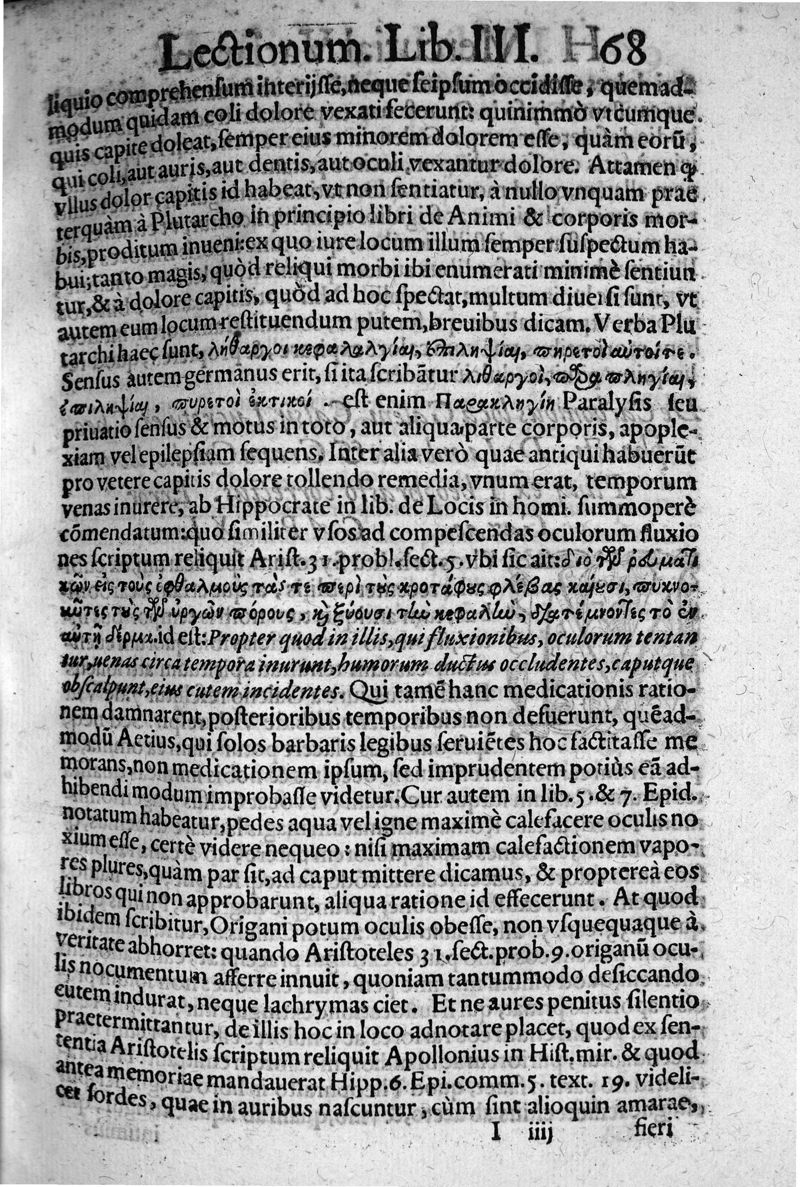 Lectionum. Lib. III. 68
liquio comprehensum interijsse, neque seipsum occidisse, quemad-
modum quidam coli dolore vexati fecerunt: quinimmò vtcumque.
quis capite doleat, semper eius minorem dolorem esse, quàm eorũ,
qui coli, aut auris, aut dentis, aut oculi vexantur dolore. Attamen ꝙ
vllus dolor capitis id habeat, vt non sentiatur, à nullo vnquam prae
terquàm à Plutarcho in principio libri de Animi & corporis mor-
bis, proditum inueni: ex quo iure locum illum semper suspectum ha-
bui; tanto magis, quòd reliqui morbi ibi enumerati minimè sentiun
tur, & à dolore capitis, quòd ad hoc spectat, multum diuersi sunt, vt
autem eum locum restituendum putem, breuibus dicam. Verba Plu
tarchi haec sunt, λήθαργοι κεφαλαλγίαι, ἐπιληψίαι, πηρετοὶ αυτοίτε.
Sensus autem germanus erit, si ita scribãtur λιθαργοὶ, παραπληγίαι,
ἐπιληψίαι, πυρετοὶ ἑκτικοί. est enim Παρακληγίη Paralysis seu
priuatio sensus & motus in toto, aut aliqua parte corporis, apople-
xiam vel epilepsiam sequens. Inter alia verò quae antiqui habuerũt
pro vetere capitis dolore tollendo remedia, vnum erat, temporum
venas inurere, ab Hippocrate in lib. de Locis in homi. summoperè
cõmendatum: quo similiter vsos ad compescendas oculorum fluxio
nes scriptum reliquit Arist. 31. probl. sect. 5. vbi sic ait: διὸ τῶν ῥευματι
κῶν εἰς τοὺς ὀφθαλμοὺς τάς τε περὶ τοὺς κροτάφους φλέβας καίουσι, πυκνο-
ῦντες τοὺς τῶν ὑργῶν πόρους, καὶ ξύουσι τὴν κεφαλὴν, διατέμνοντες τὸ ἐν
αὐτῇ δέρμα. id est: Propter quod in illis, qui fluxionibus, oculorum tentan
tur, uenas circa tempora inurunt, humorum ductus occludentes, caputque
obscalpunt, eius cutem incidentes. Qui tamẽ hanc medicationis ratio-
nem damnarent, posterioribus temporibus non defuerunt, quẽad-
modũ Aetius, qui solos barbaris legibus seruiẽtes hoc factitasse me
morans, non medicationem ipsum, sed imprudentem potiùs eã ad-
hibendi modum improbasse videtur. Cur autem in lib. 5. & 7. Epid.
notatum habeatur, pedes aqua vel igne maximè calefacere oculis no
xium esse, certè videre nequeo: nisi maximam calefactionem vapo-
res plures, quàm par sit, ad caput mittere dicamus, & proptereà eos
libros qui non approbarunt, aliqua ratione id effecerunt. At quod
ibidem scribitur, Origani potum oculis obesse, non vsquequaque à
veritate abhorret: quando Aristoteles 31. sect. prob. 9. origanũ ocu-
lis nocumentum afferre innuit, quoniam tantummodo desiccando
cutem indurat, neque lachrymas ciet. Et ne aures penitus silentio
praetermittantur, de illis hoc in loco adnotare placet, quod ex sen-
tentia Aristotelis scriptum reliquit Apollonius in Hist. mir. & quod
antea memoriae mandauerat Hipp. 6. Epi. comm. 5. text. 19. videli-
cet sordes, quae in auribus nascuntur, cùm sint alioquin amarae,
I iiij fieri